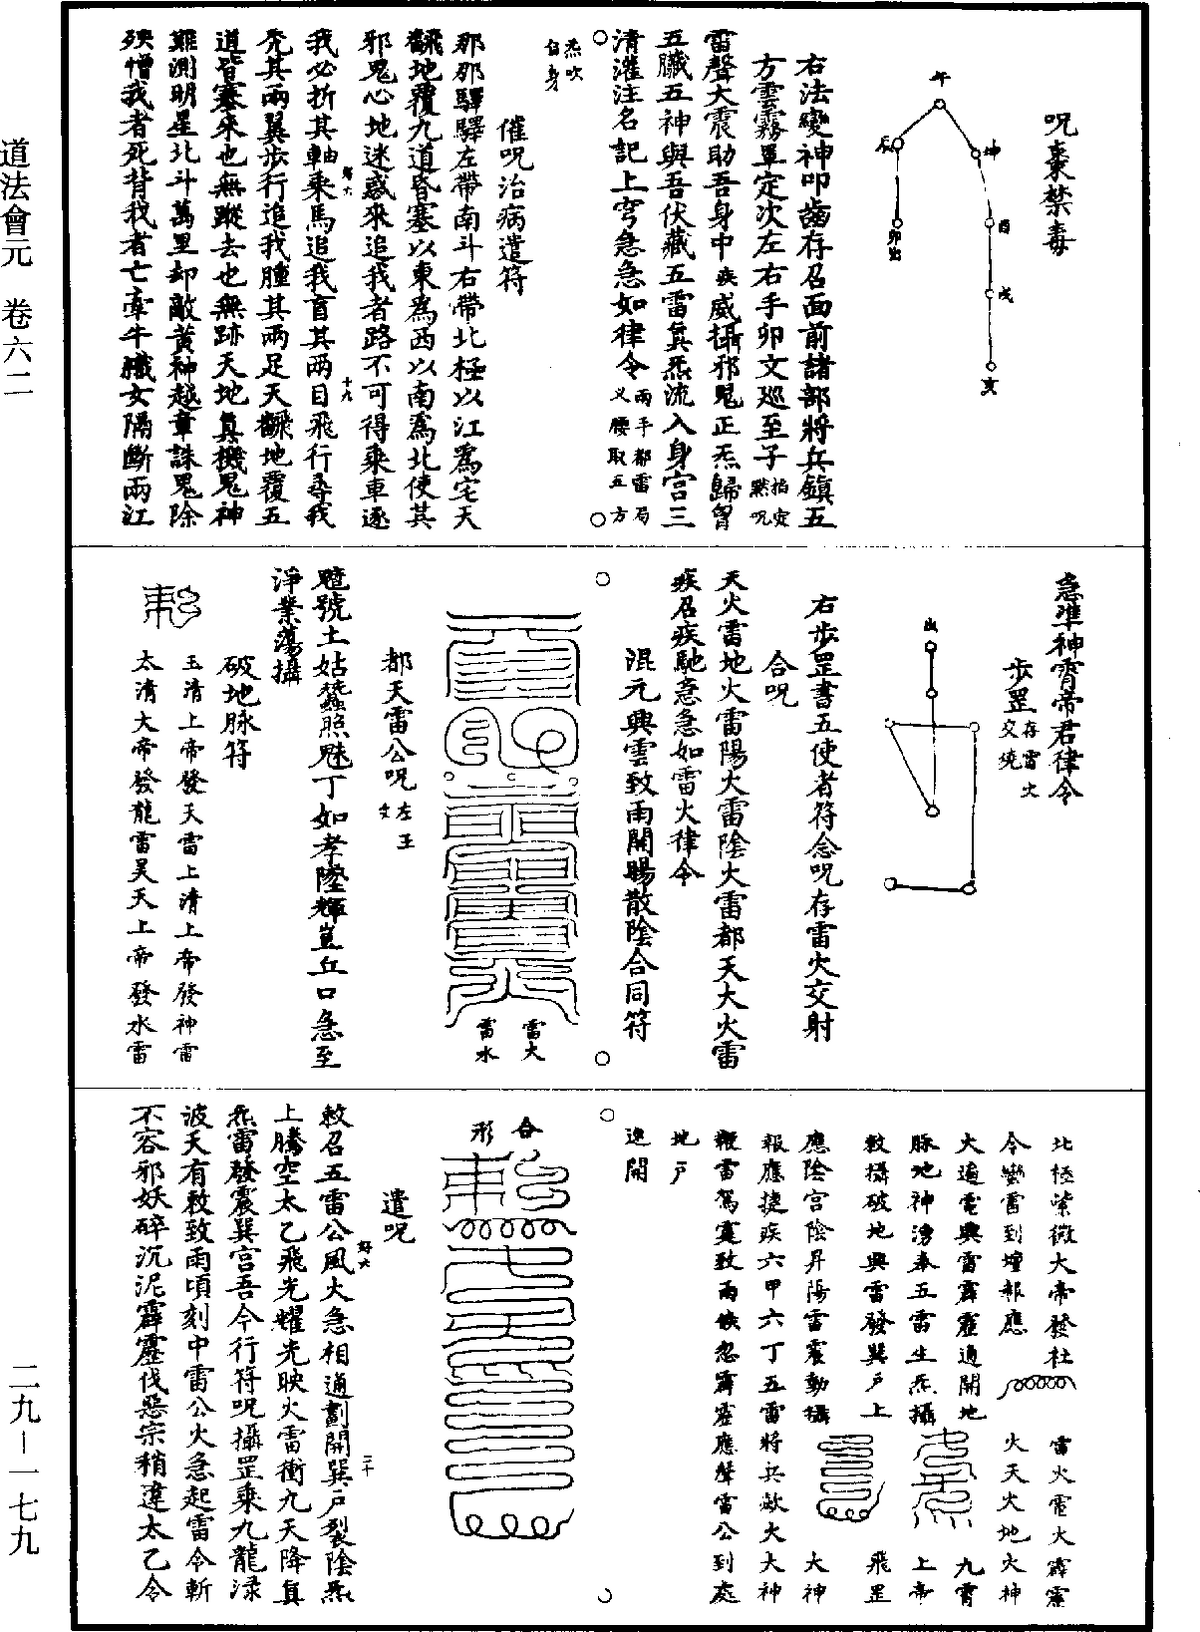 道法會元　卷六二
二九－一七九
呪棗禁毒
午
辰
坤
卯出
酉
戌
亥
右法變神叩齒存召面前諸部將兵鎮五
方雲霧罩定次左右手卯文巡至子掐定默呪
雷聲大震助吾身中疾威攝邪鬼正炁歸曾
五臟五神與吾伏藏五雷真炁流入身宮三
清漼注名記上穹急急如律令兩手都雷局叉腰取五方
炁吹白身
催呪治病遣符
那那驛驛左帶南斗右帶北極以江為宅天
翻地覆九道昏塞以東為西以南為北使其
邪鬼心地迷惑來追我者路不可得乘車逐
我必折其軸乘馬追我盲其兩目飛行尋我
禿其兩翼步行追我腫其兩足天翻地覆五
道皆塞來也無蹤去也無跡天地真機鬼神
難測明星北斗萬里却敵黃神越章誅鬼除
殃憎我者死背我者亡牽牛織女隔斷兩江
急準神霄帝君律令
步罡存雷火交繞
出
右步罡書五使者符念呪存雷火交射
合呪
天火雷地火雷陽火雷陰火雷都天大火雷
疾召疾馳急急如雷火律令
混元興雲致雨開暘散陰合同符
雷火
雷水
都天雷公呪左玉文
號土姑蠶照魅丁如孝陸輝豈丘口急至
淨業蕩攝
破地脉符
玉清上帝發天雷上清上帝發神雷
太清大帝發龍雷昊天上帝發水雷
北極紫微大帝發社雷火電大霹靂
令蠻雷到壇報應火天火地火神
大遍電興雷霹靂通開地九霄
脉地神湧奉五雷生炁攝上帝
敕攝破地興雷發巽戶上飛罡
應陰宮陰昇陽雷震動攝大神
報應捷疾六甲六丁五雷將兵歘火大神
鞭雷駕霆致雨倐忽霹靂應聲雷公到處
地戶
速開
合形
遣呪
敕召五雷公風火急相通劃開巽戶裂陰炁
上騰空太乙飛光耀光映火雷衝九天降真
炁雷發震巽宮吾今行符呪攝罡乘九龍淥
波天有敕致雨頃刻中雷公火急起雷令斬
不容邪妖碎沉泥霹靂伐惡宗稍違太乙令